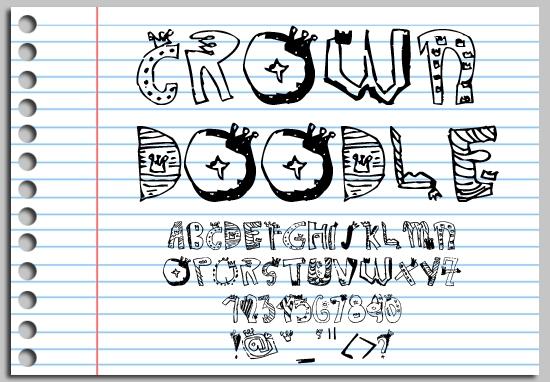 CROWN
DOODLE
ABCDEFGHIJKLMN
OPQRSTUVWXYZ
1234567890
!@ " _ " <>?